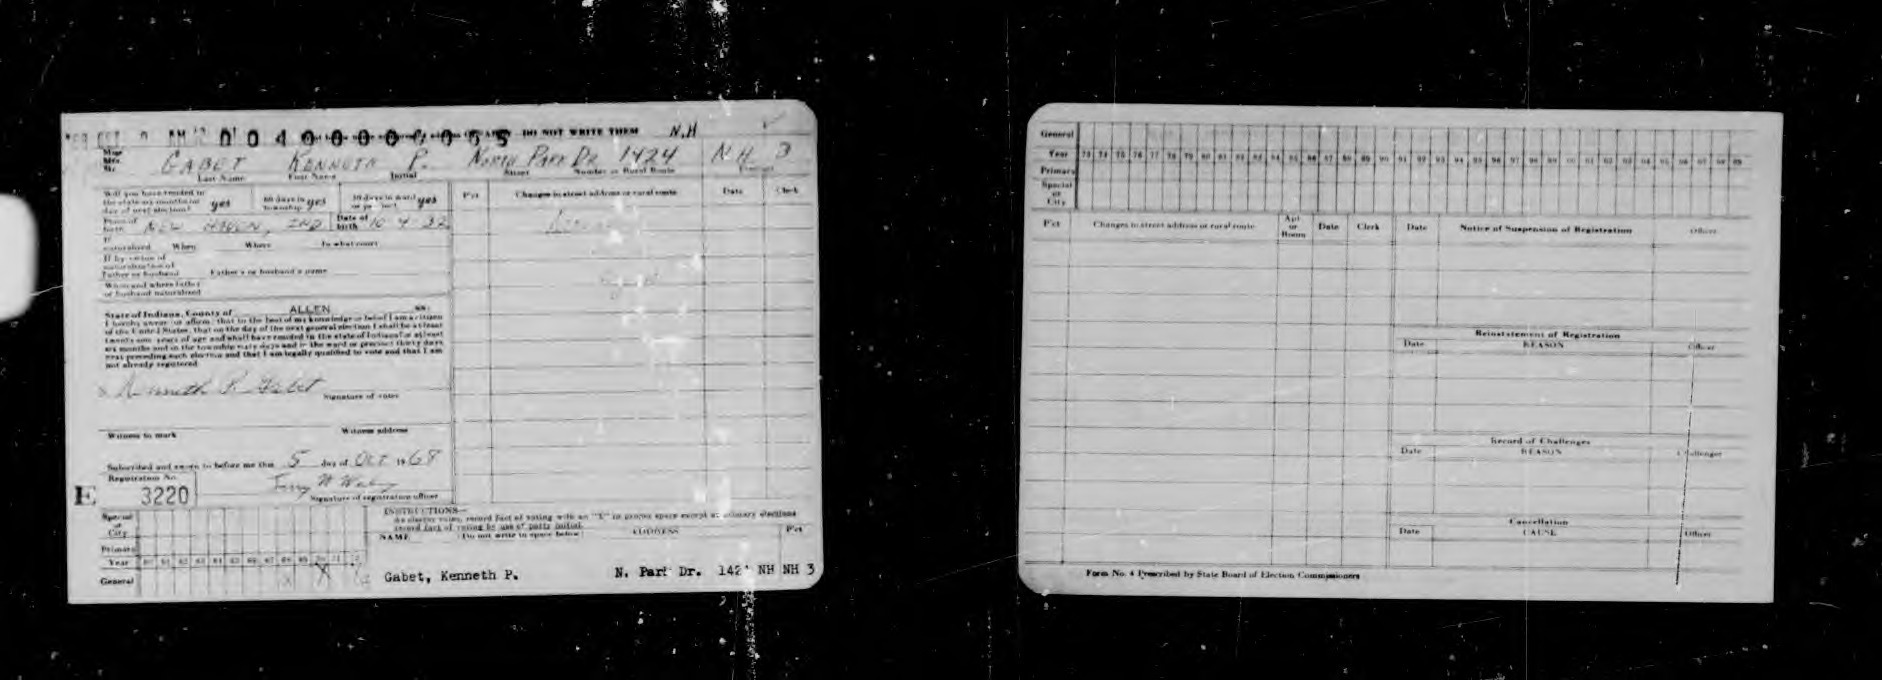 DO NOT WRITE THEM N.H
Mr.
GABET KENNETH P. NORTH PARK DR 1424 NH 3
Last Name First Name Initial Street Number or Rural Route
Will you have resided in the state six months on day of next election? yes 60 days in township yes 30 days in ward or precinct yes
P'ct Changes to street address or rural route Date Clerk
Place of birth NEW HAVEN, IND Date of birth 10-4-32
If naturalized When Where In what court
If by virtue of naturalization of Father or husband Father's or husband's name
When and where father or husband naturalized
State of Indiana, County of ALLEN ss:
I hereby swear (or affirm) that to the best of my knowledge or belief I am a citizen
of the United States, that on the day of the next general election I shall be at least
twenty-one years of age and shall have resided in the state of Indiana for at least
six months and in the township sixty days and in the ward or precinct thirty days
next preceding such election and that I am legally qualified to vote and that I am
not already registered
Kenneth P. Gabet
Signature of voter
Witness to mark Witness address
Subscribed and sworn to before me this 5 day of OCT 1968
Registration No.
E 3220
Signature of registration officer
INSTRUCTIONS—
Special or City
Primary
Year
General
record fact of voting by use of party initial.
NAME (Do not write in space below) ADDRESS P'ct
Gabet, Kenneth P. N. Park Dr. 1424 NH NH 3
General
Year 73 74 75 76 77 78 79 80 81 82 83 84 85 86 87 88 89 90 91 92 93 94 95 96 97 98 99 00 01 02 03 04 05 06 07 08 09
Primary
Special or City
P'ct Changes to street address or rural route Apt or Room Date Clerk Date Notice of Suspension of Registration Officer
Reinstatement of Registration
Date REASON Officer
Record of Challenges
Date REASON Challenger
Cancellation
Date CAUSE Officer
Form No. 4 Prescribed by State Board of Election Commissioners